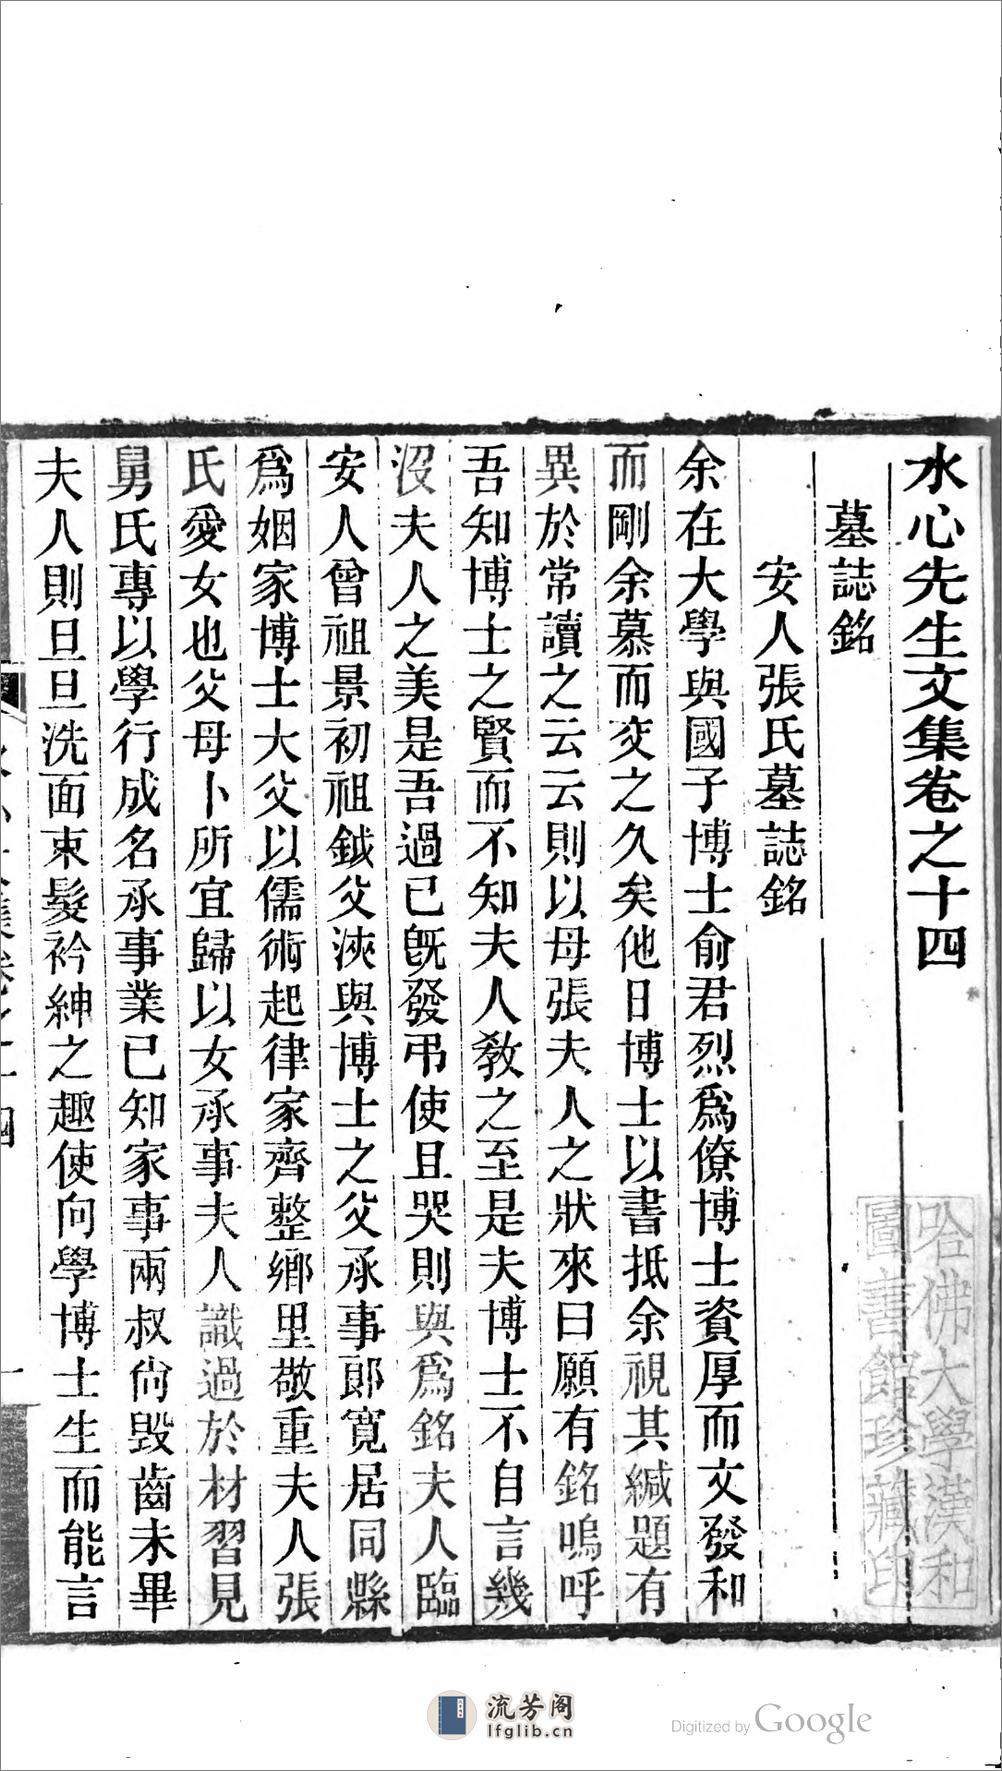 水心先生文集卷之十四
墓誌銘
安人張氏墓誌銘
余在大學與國子博士俞君烈爲僚博士資厚而文發和
而剛余慕而交之久矣他日博士以書抵余視其緘題有
異於常讀之云云則以母張夫人之狀來曰願有銘嗚呼
吾知博士之賢而不知夫人敎之至是夫博士不自言幾
沒夫人之美是吾過已旣發弔使且哭則與爲銘夫人臨
安人曾祖景初祖鉞父浹與博士之父承事郞寛居同縣
爲姻家博士大父以儒術起律家齊整鄉里敬重夫人張
氏愛女也父母卜所宜歸以女承事夫人識過於材習見
舅氏專以學行成名承事業已知家事兩叔尙毀齒未畢
夫人則旦旦洗面束髮衿紳之趣使向學博士生而能言
哈佛大學漢和
圖書館珍藏印
流芳阁
lfglib.cn
Digitized by Google